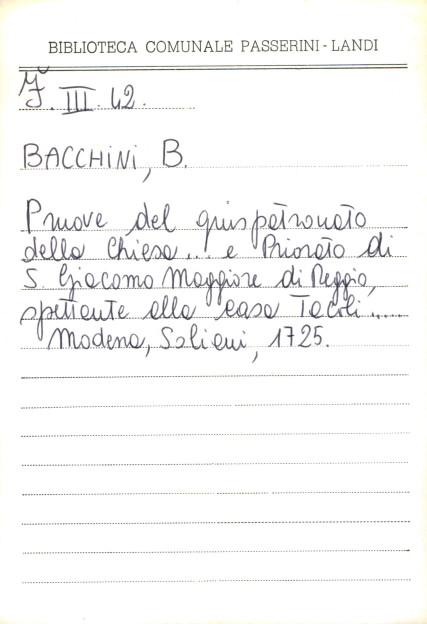 BIBLIOTECA COMUNALE PASSERINI - LANDI
J. III. 42.
BACCHINI, B.
Pruove del giuspatronato
della Chiesa... e Priorato di
S. Giacomo Maggiore di Reggio,
spettante alla casa Tacoli.....
Modena, Soliani, 1725.